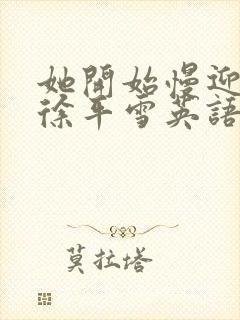 她開始慢迎
徐平雪英語
莫拉塔